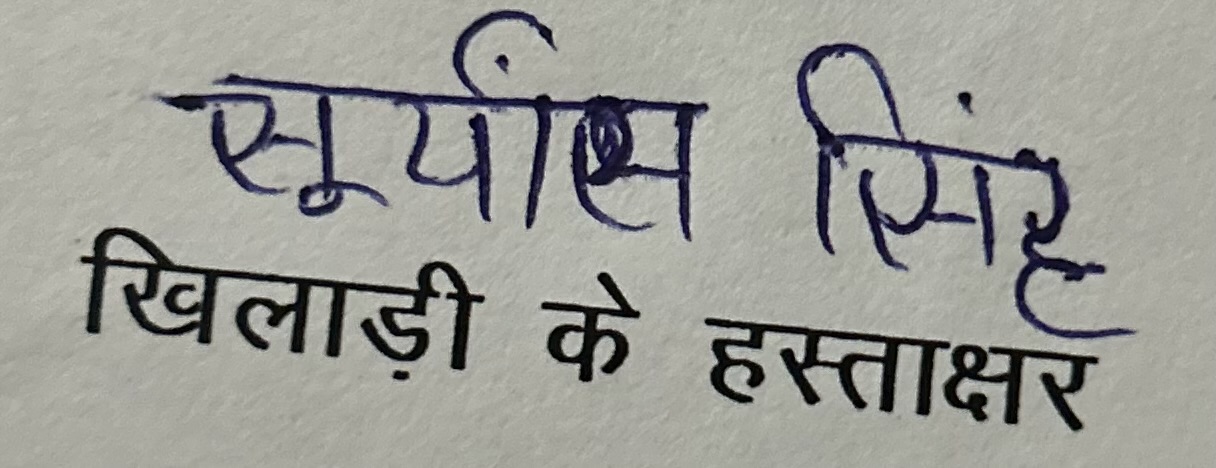 सूर्यांस सिंह
खिलाड़ी के हस्ताक्षर